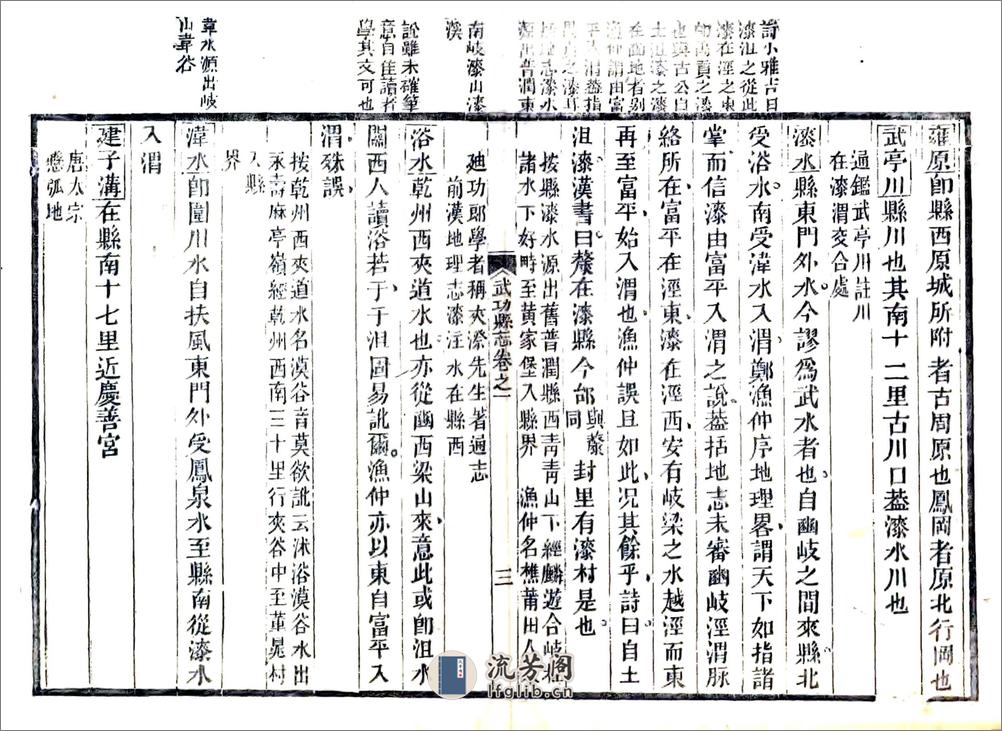 雍原即縣西原城所附者古周原也鳳岡者原北行岡也
武亭川縣川也其南十二里古川口葢漆水川也
通鑑武亭川註川
在漆渭交合處
漆水縣東門外水今謬爲武水者也自豳岐之間來縣北
受浴水南受湋水入渭鄭漁仲序地理畧謂天下如指諸
掌而信漆由富平入渭之說葢括地志未審豳岐涇渭脉
絡所在富平在涇東漆在涇西安有岐梁之水越涇而東
再至富平始入渭也漁仲誤且如此况其餘乎詩曰自土
沮漆漢書曰漦在漆縣今邰與漦同封里有漆村是也
按縣漆水源出舊普潤縣西青青山下經麟遊合岐
諸水下好畤至黃家堡入縣界 漁仲名樵莆田人
廸功郎學者稱夾漈先生著通志
前漢地理志漆水在縣西
浴水乾州西夾道水也亦從豳西梁山來意此或即沮水
關西人讀浴若于于沮固易訛爾漁仲亦以東自富平入
渭殊誤
按乾州西夾道水名漠谷音莫欲訛云沐浴漠谷水出
永壽麻亭嶺經乾州西南三十里行夾谷中至董晁村
入縣
界
湋水即圍川水自扶風東門外受鳳泉水至縣南從漆水
入渭
建子溝在縣南十七里近慶善宮
唐太宗
懸弧地
武功縣志卷之一
三
詩小雅吉日
漆沮之從此
漆在涇之東
即禹貢之漆
也與古公自
土沮漆之漆
在豳地者別
漁仲謂由富
平入渭葢指
源出普潤東
南岐漆山漆
溪
說雖未確筆
意自佳讀者
學其文可也
韋水源出岐
山韋谷
流芳阁
lfglib.cn